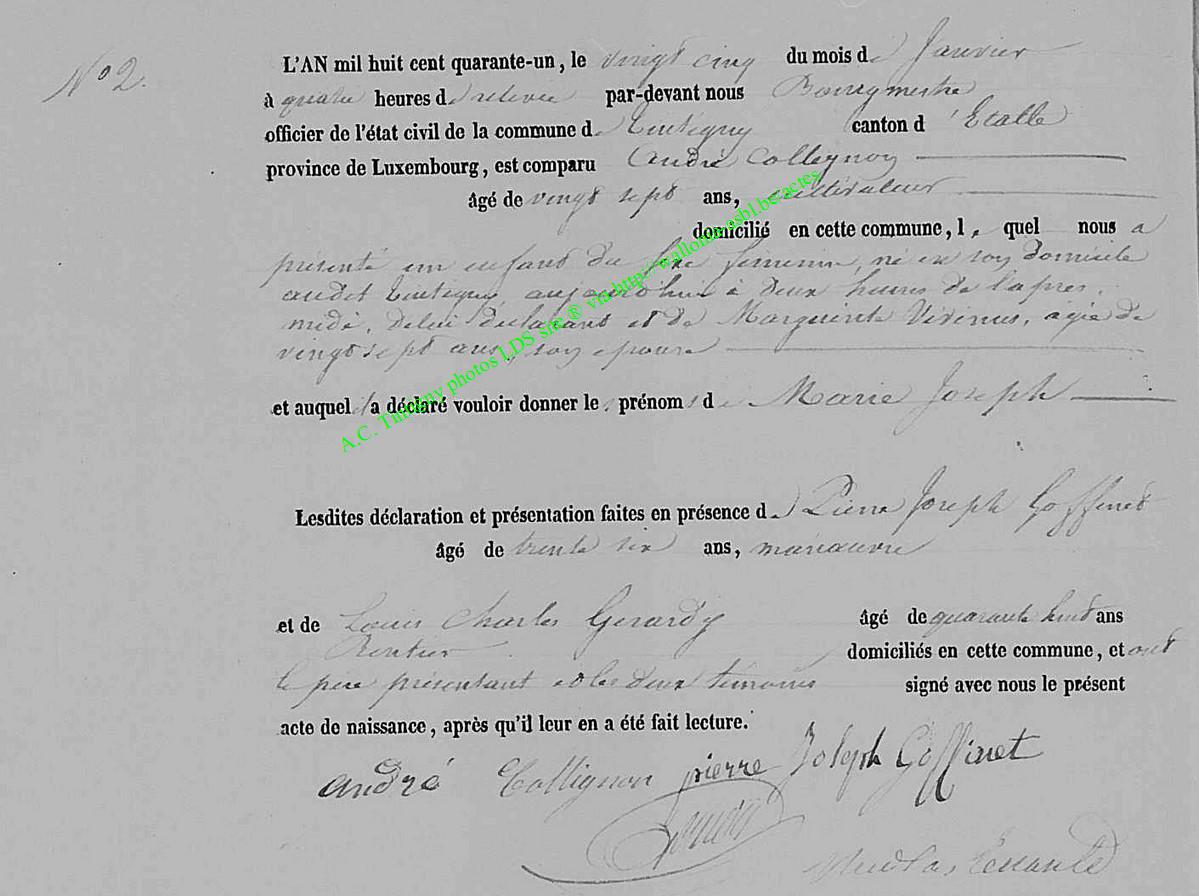 N° 2.
L'AN mil huit cent quarante-un, le vingt cinq du mois de Janvier
à quatre heures de relevée par-devant nous Bourgmestre
officier de l'état civil de la commune de Tintigny canton d'Etalle
province de Luxembourg, est comparu André Collignon
âgé de vingt sept ans, cultivateur
domicilié en cette commune, le quel nous a
présenté un enfant du sexe feminin, né en son domicile
audit Tintigny, aujourd'hui à deux heures de l'après
midi, de lui déclarant et de Marguerite Virinus, agée de
vingt sept ans, son epouse
et auquel il a déclaré vouloir donner les prénoms de Marie Joseph
Lesdites déclaration et présentation faites en présence de Pierre Joseph Goffinet
âgé de trente six ans, manœuvre
et de Louis Charles Gerardy âgé de quarante huit ans
Rentier. domiciliés en cette commune, et ont
le père présentant et les deux témoins signé avec nous le présent
acte de naissance, après qu'il leur en a été fait lecture.
andré Collignon pierre Joseph Goffinet
A.C. Tintigny photos LDS site ® via http://wallonia.asbl.be/actes